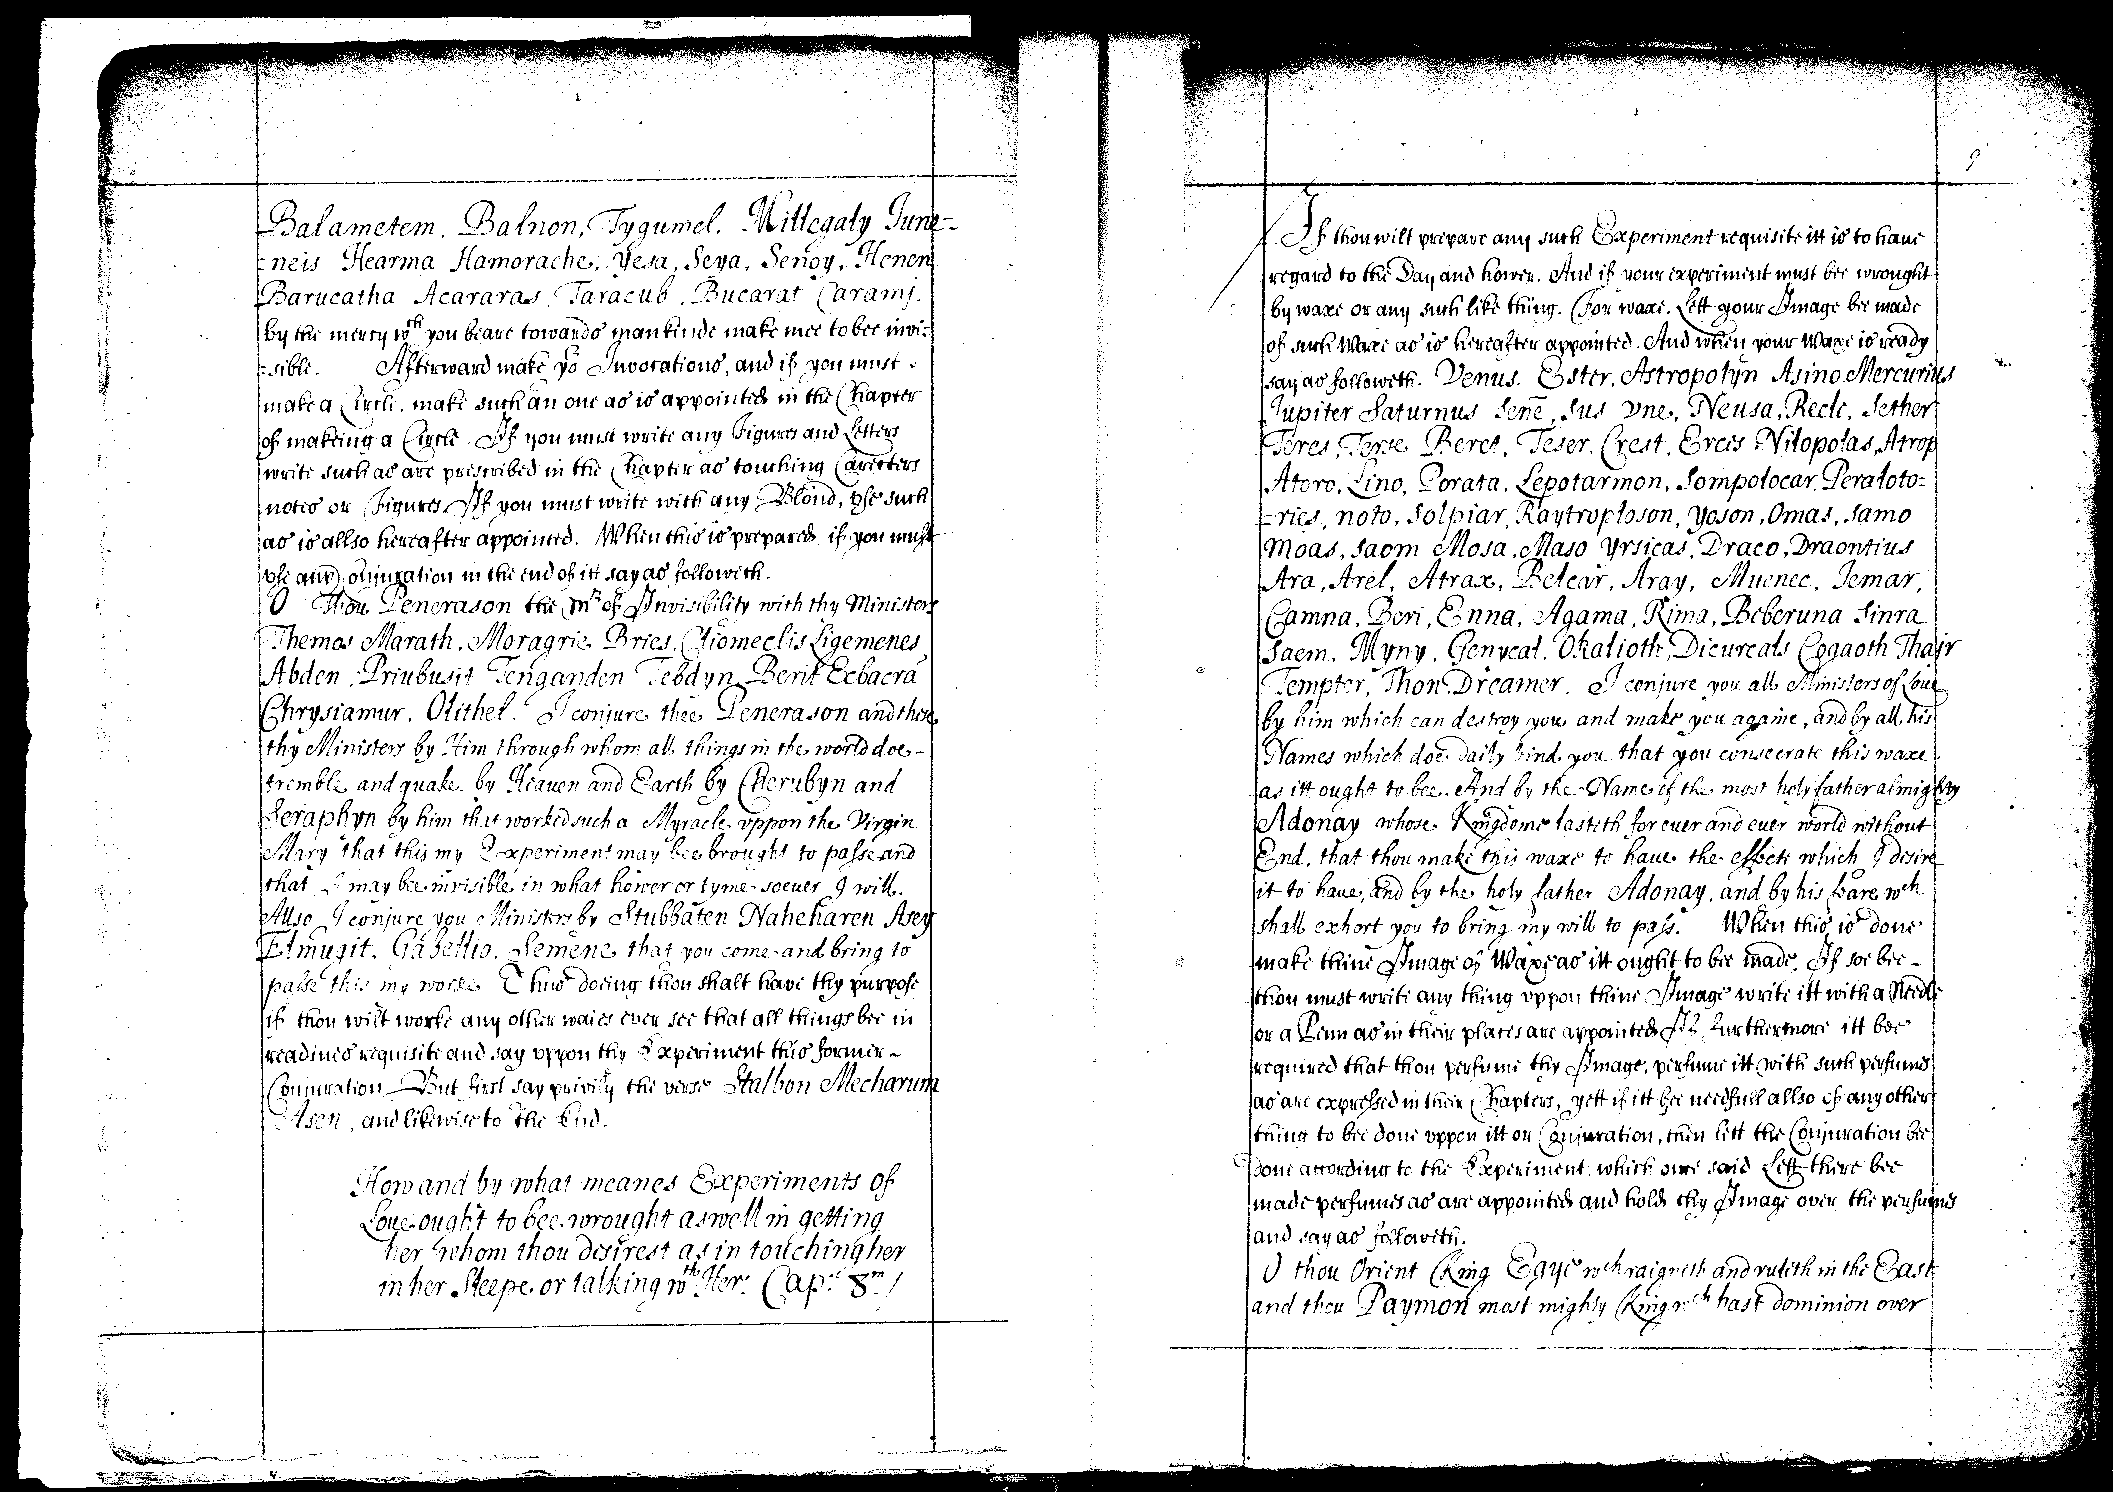 Balametem. Balnon, Tygumel. Millegaly June=
=neis Hearma Hamorache, Yesa, Seya, Senoy, Henen
Barucatha Acararas, Taracub, Bucarat Caramj.
by the mercy wch you beare towards mankinde make mee to bee invi=
=sible. Afterward make yo Invocations, and if you must
make a Circle. make such an one as is appointed in the Chapter
of makeing a Circle. If you must write any Figures and Letters
write such as are prescribed in the Chapter as touching Carecters
notes or Figures If you must write with any Bloud, vse such
as is allso hereafter appointed. When this is prepared if you must
vse any Conjuration in the end of itt say as followeth.
O Thou Penerason the Mr of Invisibility with thy Ministers
Themos Marath. Moragrie Bries, Cliomeclis Ligemenes
Abden, Priubusit Tenganden Tebdyn Berit Ecbacra
Chrysiamur. Olithel. I conjure thee Penerason and these
thy Ministers by Him through whom all things in the world doe
tremble and quake by Heaven and Earth by Cherubyn and
Seraphyn by him that worked such a Myracle vppon the Virgin
Mary that this my Experiment may bee brought to passe and
that I may bee invisible in what hower or tyme soever I will.
Allso I conjure you Ministers by Stubbaten Naheharen Asey
Elmugit, Gabellio. Semene that you come and bring to
passe this my worke Thus doeing thou shalt have thy purpose
if thou wilt worke any other waies ever see that all things bee in
readines requisite and say vppon thy Experiment this former
Conjuration But first say privily the verse Stalbon Mecharum
Asen, and likewise to The End.
How and by what meanes Experiments of
Loue ought to bee wrought aswell in getting
her whom thou desirest as in touching her
in her Sleepe or talking wth Her. Cap: 8m
9
If thou wilt prepare any such Experiment requisite itt is to have
regard to the Day and hower. And if your experiment must bee wrought
by waxe or any such like thing. For waxe. Lett your Image bee made
of such Waxe as is hereafter appointed. And when your Waxe is ready
say as followeth. Venus. Ester, Astropolyn Asino Mercurius
Jupiter Saturnus Sene, Sus vne, Neusa, Recle, Sether
Teres, Terse Beres, Teser, Crest, Erces Nilopolas, Atrop
Atoro, Lino, Porata, Lepotarmon, Sompolocar, Peraloto=
=ries, noto, Solpiar, Raytroploson, Yoson, Omas, Samo
Moas, Saom Mosa, Maso Yrsicas, Draco, Draontius
Ara, Arel, Atrax, Belcar, Aray, Muenec, Jemar,
Camna, Beri, Enna, Agama, Rima, Beberuna Sinra
Saem. Myny. Genycal. Okalioth, Dicurcals Cogaoth Thair
Tempter, Thon Dreamer. I conjure you all Ministers of Loue
by him which can destroy you and make you againe, and by all his
Names which doe daily bind you that you consecrate this waxe
as itt ought to bee. And by the Name of the most holy father almighty
Adonay whose Kingdome lasteth for ever and ever world without
End. that thou make this waxe to have the effects which I desire
it to have, and by the holy father Adonay, and by his wch
shall exhort you to bring my will to pass. When this is done
make thine Image of Waxe as itt ought to bee made. If soe bee
thou must write any thing vppon thine Image write itt with a Needle
or a Penn as in their places are appointed If furthermore itt bee
required that thou perfume thy Image, perfume itt with such perfumes
as are expressed in their Chapters, yett if itt bee needfull allso of any other
thing to bee done vppon itt or Conjuration, then lett the Conjuration bee
done according to the Experiment which were said Lett there bee
made perfumes as are appointed and hold thy Image over the perfumes
and say as followeth.
O thou Orient King Egye wch raigneth and ruleth in the East
and thou Paymon most mighty King wch hast dominion over